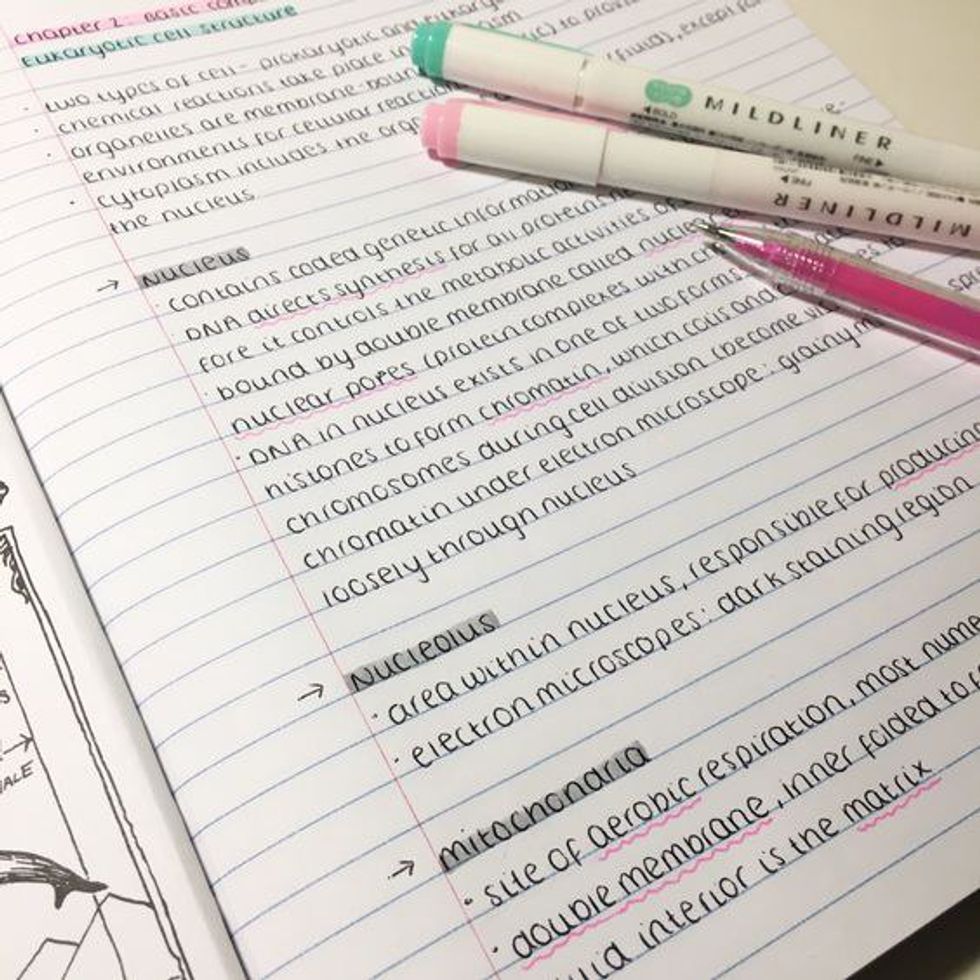 Chapter 2: Basic
Eukaryotic cell structure
· two types of cell - prokaryotic and
· chemical reactions take place in
· organelles are membrane-bound
environments for cellular reactions
· cytoplasm includes the
the nucleus
→ Nucleus
· contains coded genetic information
· DNA directs synthesis for all proteins
fore it controls the metabolic activities of
· bound by double membrane called
nuclear pores (protein complexes with
· DNA in nucleus exists in one of two forms
histones to form chromatin, which coils and
chromosomes during cell division (become
chromatin under electron microscope: grainy
loosely through nucleus
→ Nucleolus
· area within nucleus, responsible for producing
· electron microscopes: dark staining region
→ mitochondria
· site of aerobic respiration, most
· double membrane, inner folded to
interior is the matrix
MILDLINER
MILDLINER